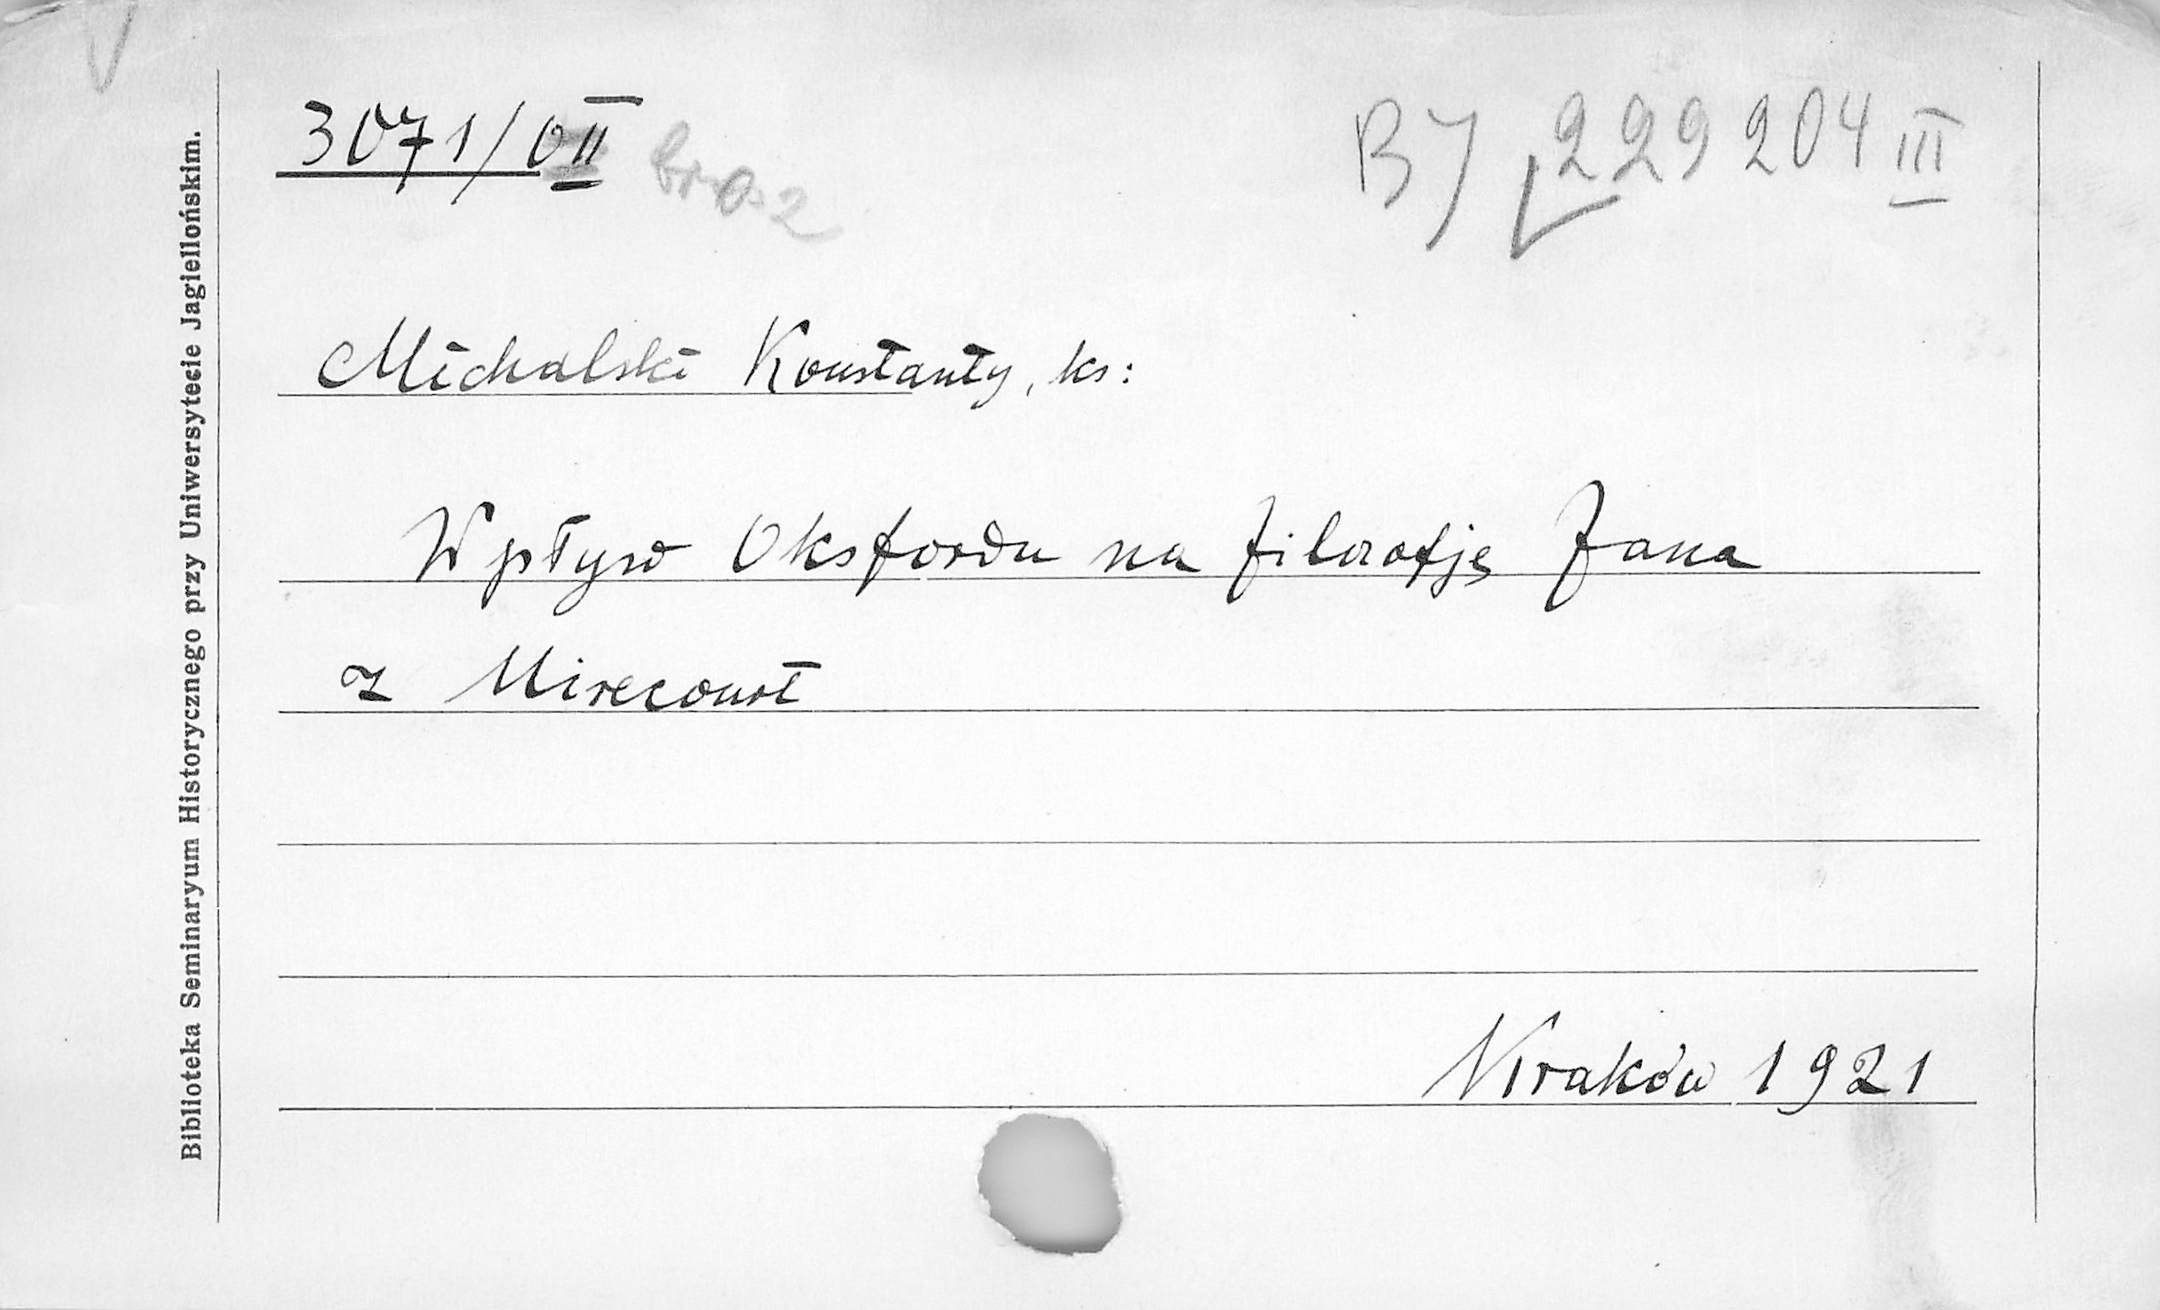 V
3071/0II brosz
BJ 229204 III
Michalski Konstanty, ks:
Wpływ Oksfordu na filozofję Jana
z Mirecourt
Kraków 1921
Biblioteka Seminaryum Historycznego przy Uniwersytecie Jagiellońskim.